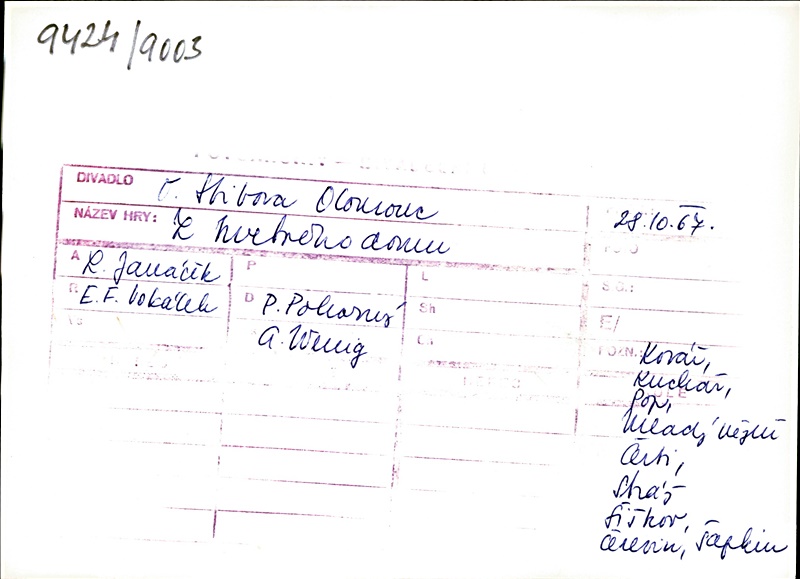 9424/9003
DIVADLO O. Stibora Olomouc
28.10.67.
NÁZEV HRY: Z mrtvého domu
A L. Janáček P L
S.O.:
R E. F. Vokálek D P. Pokorný Sh
E/
A. Wenig
POZN.: Kovář,
Kuchař,
Pop,
Mladý vězeň
Čerti,
Stráž
Šiškov,
Čerevin, Šapkin